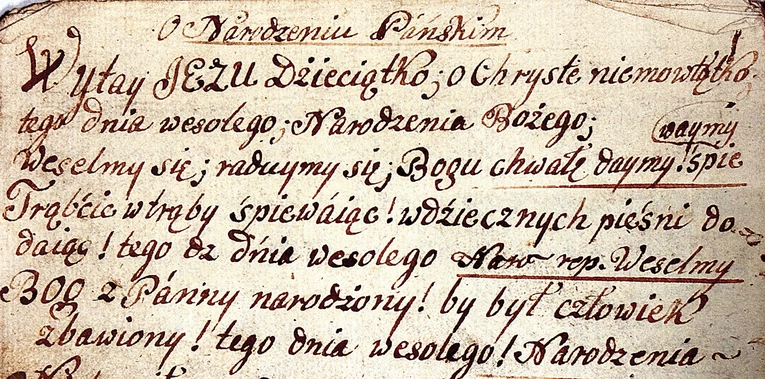 O Narodzeniu Pánskim
Wytay JEZU Dzieciątko; o Chryste niemowlątko;
tego dnia wesolego; Narodzenia Bożego;
waymy
Weselmy się; raduymy się; Bogu chwałę daymy! śpie
Trąbcie w trąby śpiewáiąc! wdziecznych pięśni do
daiąc! tego dz dnia wesolego Naro rep. Weselmy
BOG z Pánny narodżony! by był człowiek
zbawiony! tego dnia wesolego! Narodzenia